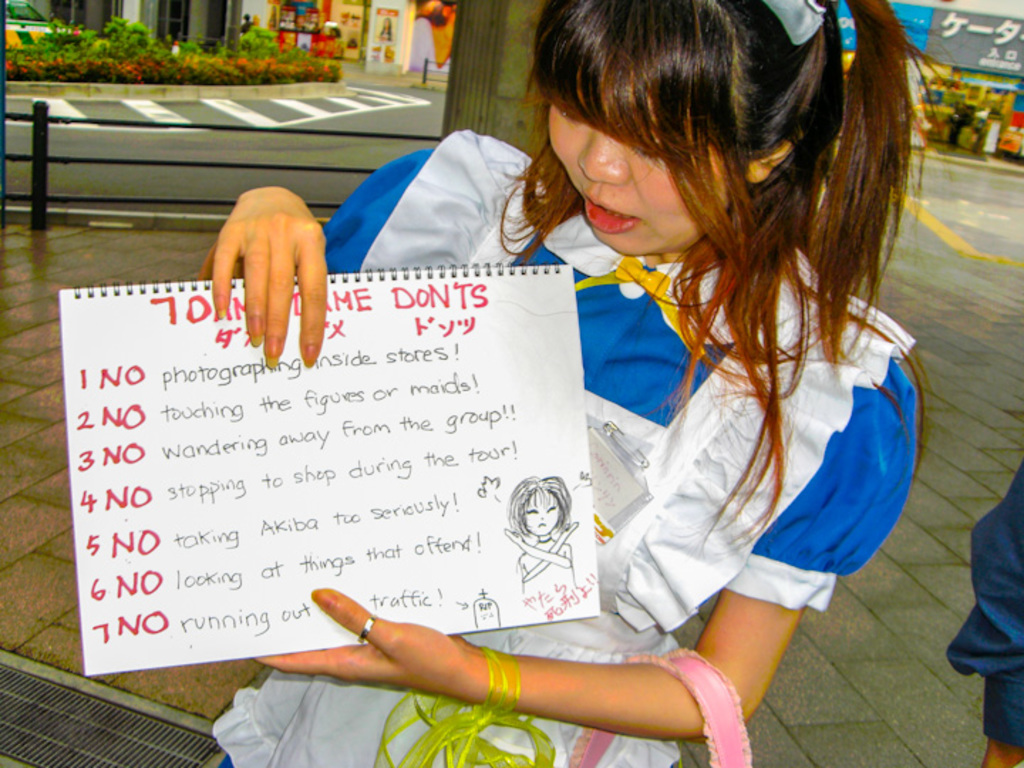 7 DAME DONTS
ダメ ドンツ
1 NO photographing inside stores!
2 NO touching the figures or maids!
3 NO wandering away from the group!!
4 NO stopping to shop during the tour!
5 NO taking Akiba too seriously!
6 NO looking at things that offend!
7 NO running out traffic!
RIP
やたら
死刑よ!!
ケータ
入口
entrance